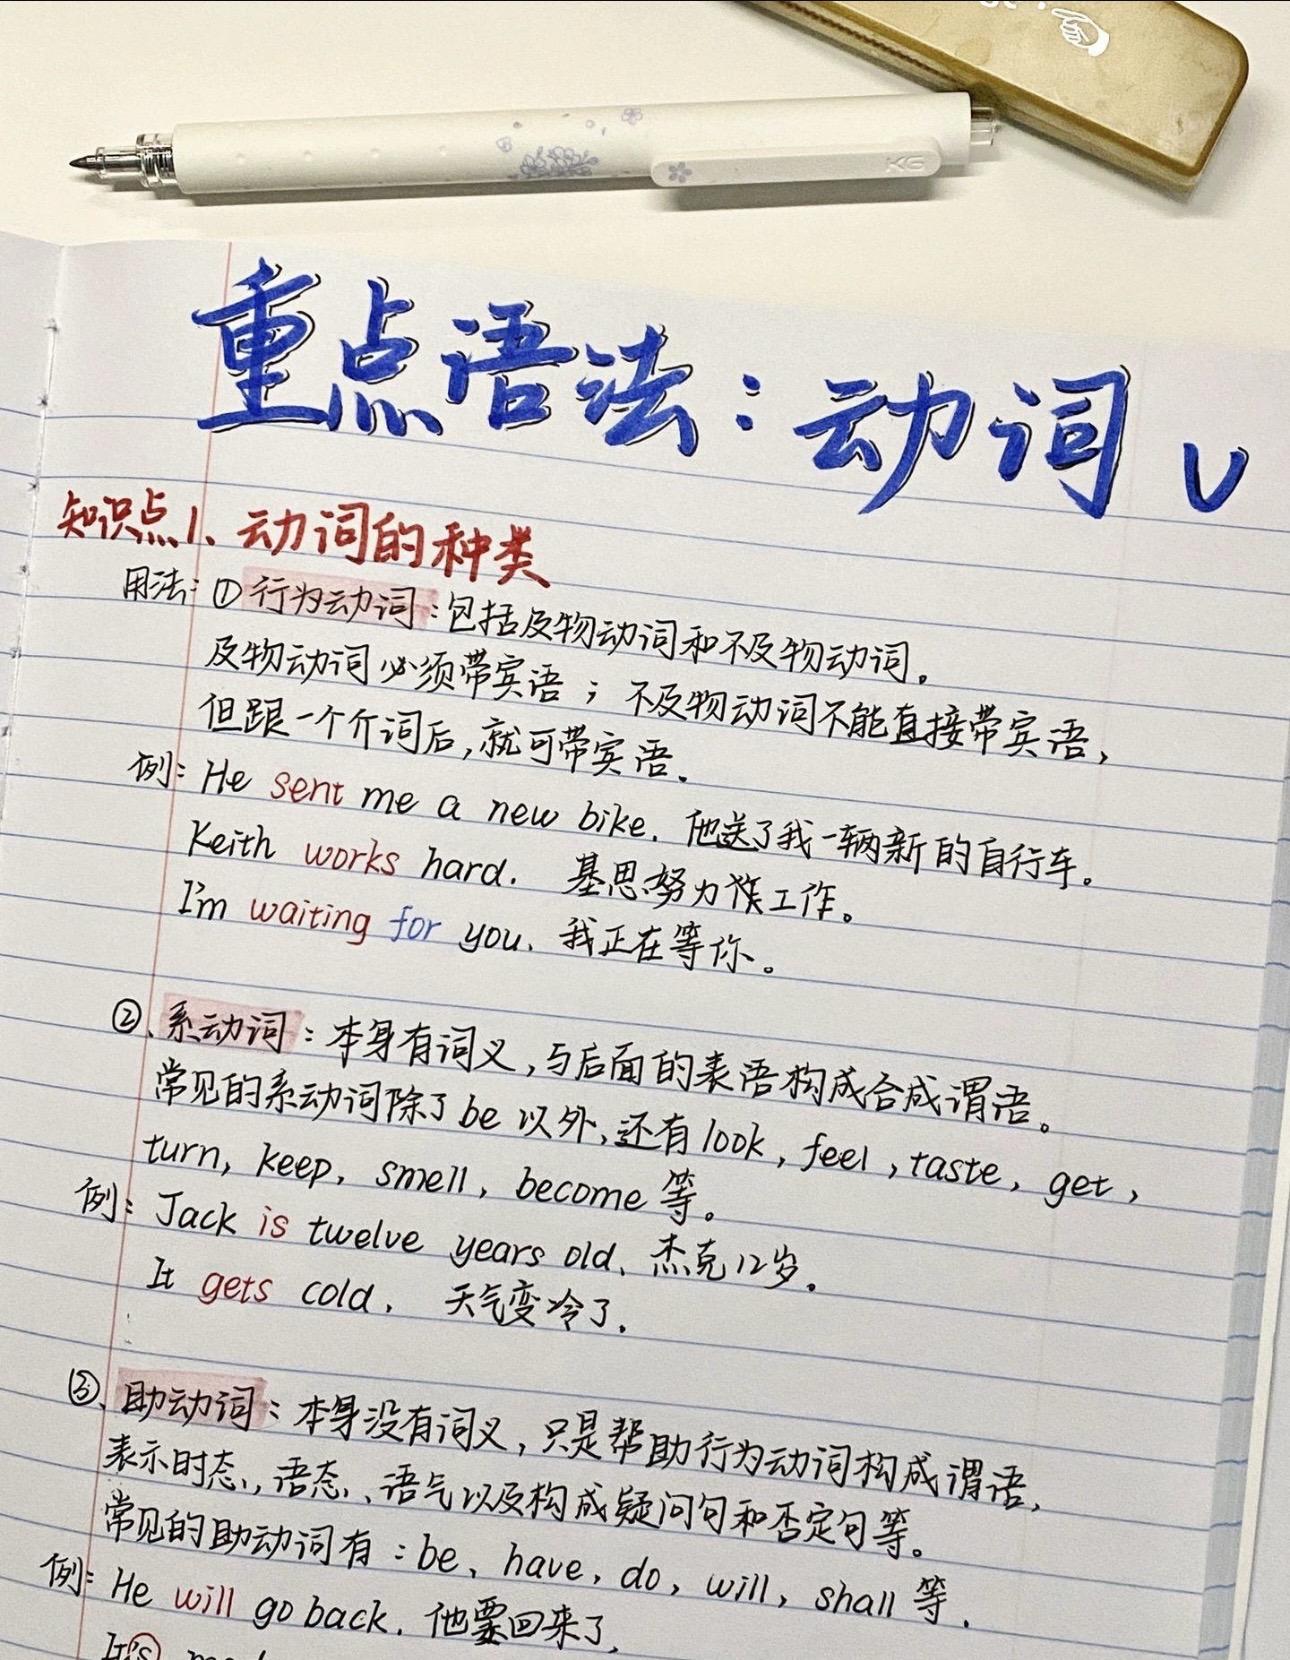 重点语法：动词 v
知识点1、动词的种类
用法：①行为动词：包括及物动词和不及物动词。
及物动词必须带宾语；不及物动词不能直接带宾语，
但跟一个介词后，就可带宾语.
例：He sent me a new bike. 他送了我一辆新的自行车。
Keith works hard. 基思努力工作。
I'm waiting for you. 我正在等你。
②、系动词：本身有词义，与后面的表语构成合成谓语。
常见的系动词除了be以外，还有look，feel，taste，get，
turn，keep，smell，become等。
例：Jack is twelve years old. 杰克12岁.
It gets cold. 天气变冷了.
③、助动词：本身没有词义，只是帮助行为动词构成谓语，
表示时态、语态、语气以及构成疑问句和否定句等。
常见的助动词有：be、have，do，will，shall等.
例：He will go back. 他要回来了.
It's